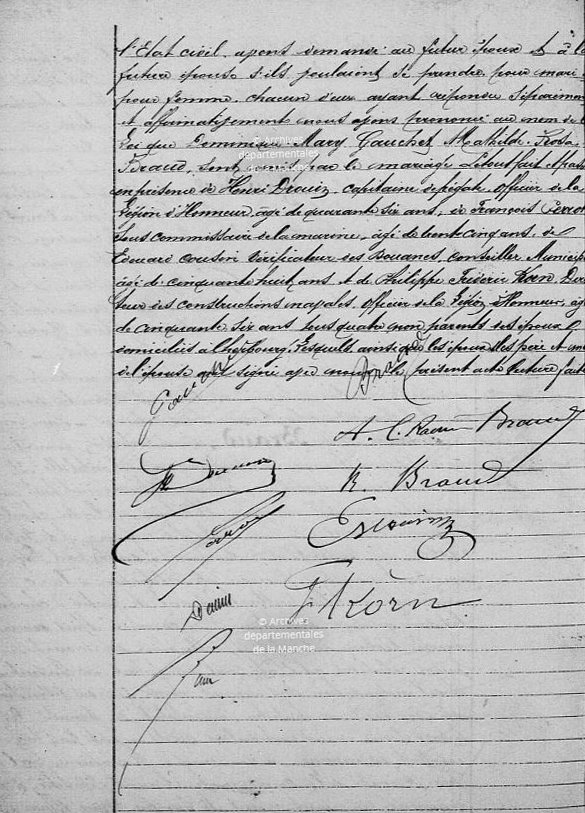 l'Etat civil, ayons demandé au futur époux et à la
future épouse s'ils voulaient se prendre pour mari
pour femme, chacun d'eux ayant répondu séparément
et affirmativement nous avons prononcé au nom de la
Loi que Dominique Mary Gauchet Mathilde Rosa
Braud, sont unis par le mariage. Le tout fait
en présence de Henri Drouin, capitaine de frégate, officier de la
Légion d'Honneur, âgé de quarante six ans, de François
sous commissaire de la marine, âgé de trente cinq ans, de
Edouard vérificateur des Douanes, conseiller Municip
âgé de cinquante huit ans et de Philippe Frédéric Korn Direc
teur des constructions navales, officier de la Légion d'Honneur, âgé
de cinquante six ans, tous quatre non parents des époux
domiciliés à Cherbourg, lesquels ainsi que les époux, les père et mère
de l'épouse ont signé avec nous le présent acte lecture faite
A. C. Braud
R. Braud
F. Korn
© Archives
départementales
de la Manche
© Archives
départementales
de la Manche